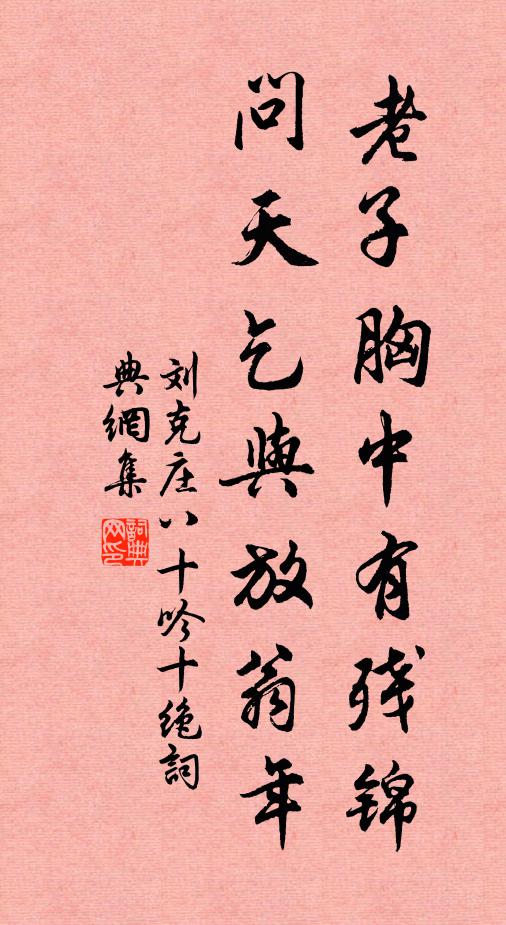 老子胸中有残锦
问天乞與放翁年
刘克庄八十吟十绝詞
典網集
詞典网印